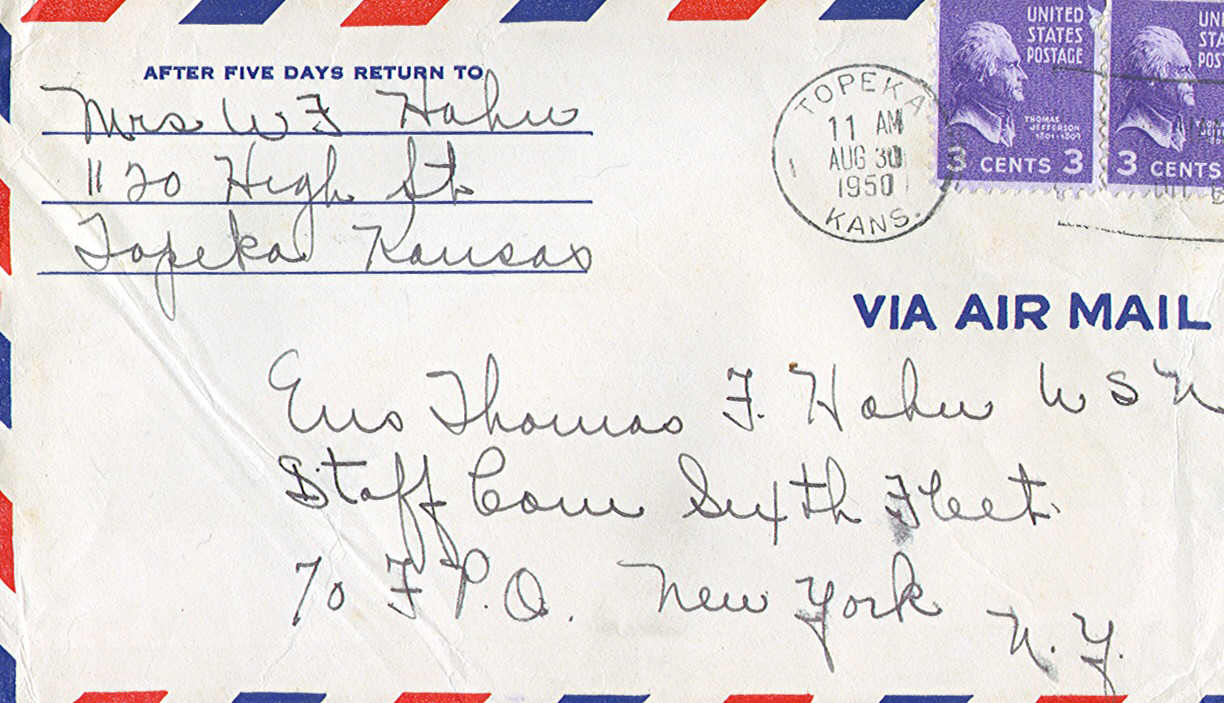 AFTER FIVE DAYS RETURN TO
Mrs W F Hahn
1120 High St
Topeka Kansas
TOPEKA
11 AM
AUG 30
1950
KANS.
UNITED
STATES
POSTAGE
THOMAS
JEFFERSON
1801-1809
3 CENTS 3
UNI
STA
POS
3 CENTS
VIA AIR MAIL
Ens Thomas F. Hahn USN
Staff Com Sixth Fleet
% F P.O. New York
N.Y.